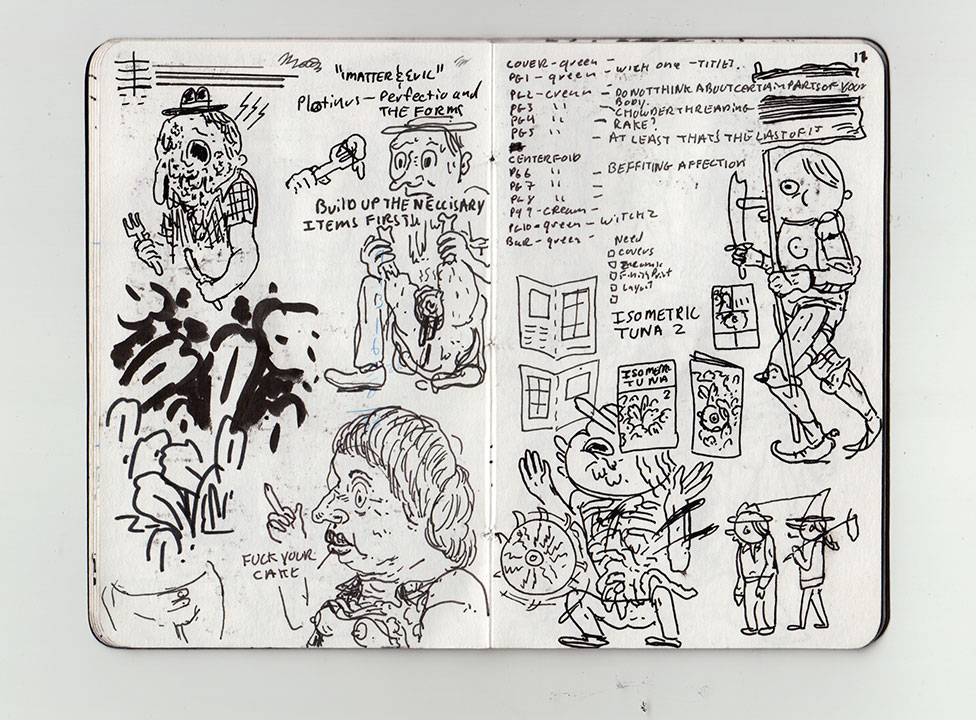 "MATTER & EVIL"
Plotinus - Perfection and
THE FORMS
BUILD UP THE NECCISARY
ITEMS FIRST
FUCK YOUR
CAKE
17
COVER - green -
PG1 - green - with one - TITLE?
PG2 - cream - DO NOT THINK ABOUT CERTAIN PARTS OF YOUR
BODY.
PG3 " - CHOWDER THREADING
PG4 " - RAKE?
PG5 " - AT LEAST THAT'S THE LAST OF IT
CENTERFOLD
PG6 " - BEFFITING AFFECTION
PG7 " -
PG8 " -
PG9 - CREAM -
PG10 - green - WITCH 2
BACK - green -
Need
COVERS
Layout
ISOMETRIC
TUNA 2
ISOMETRIC
TUNA
2